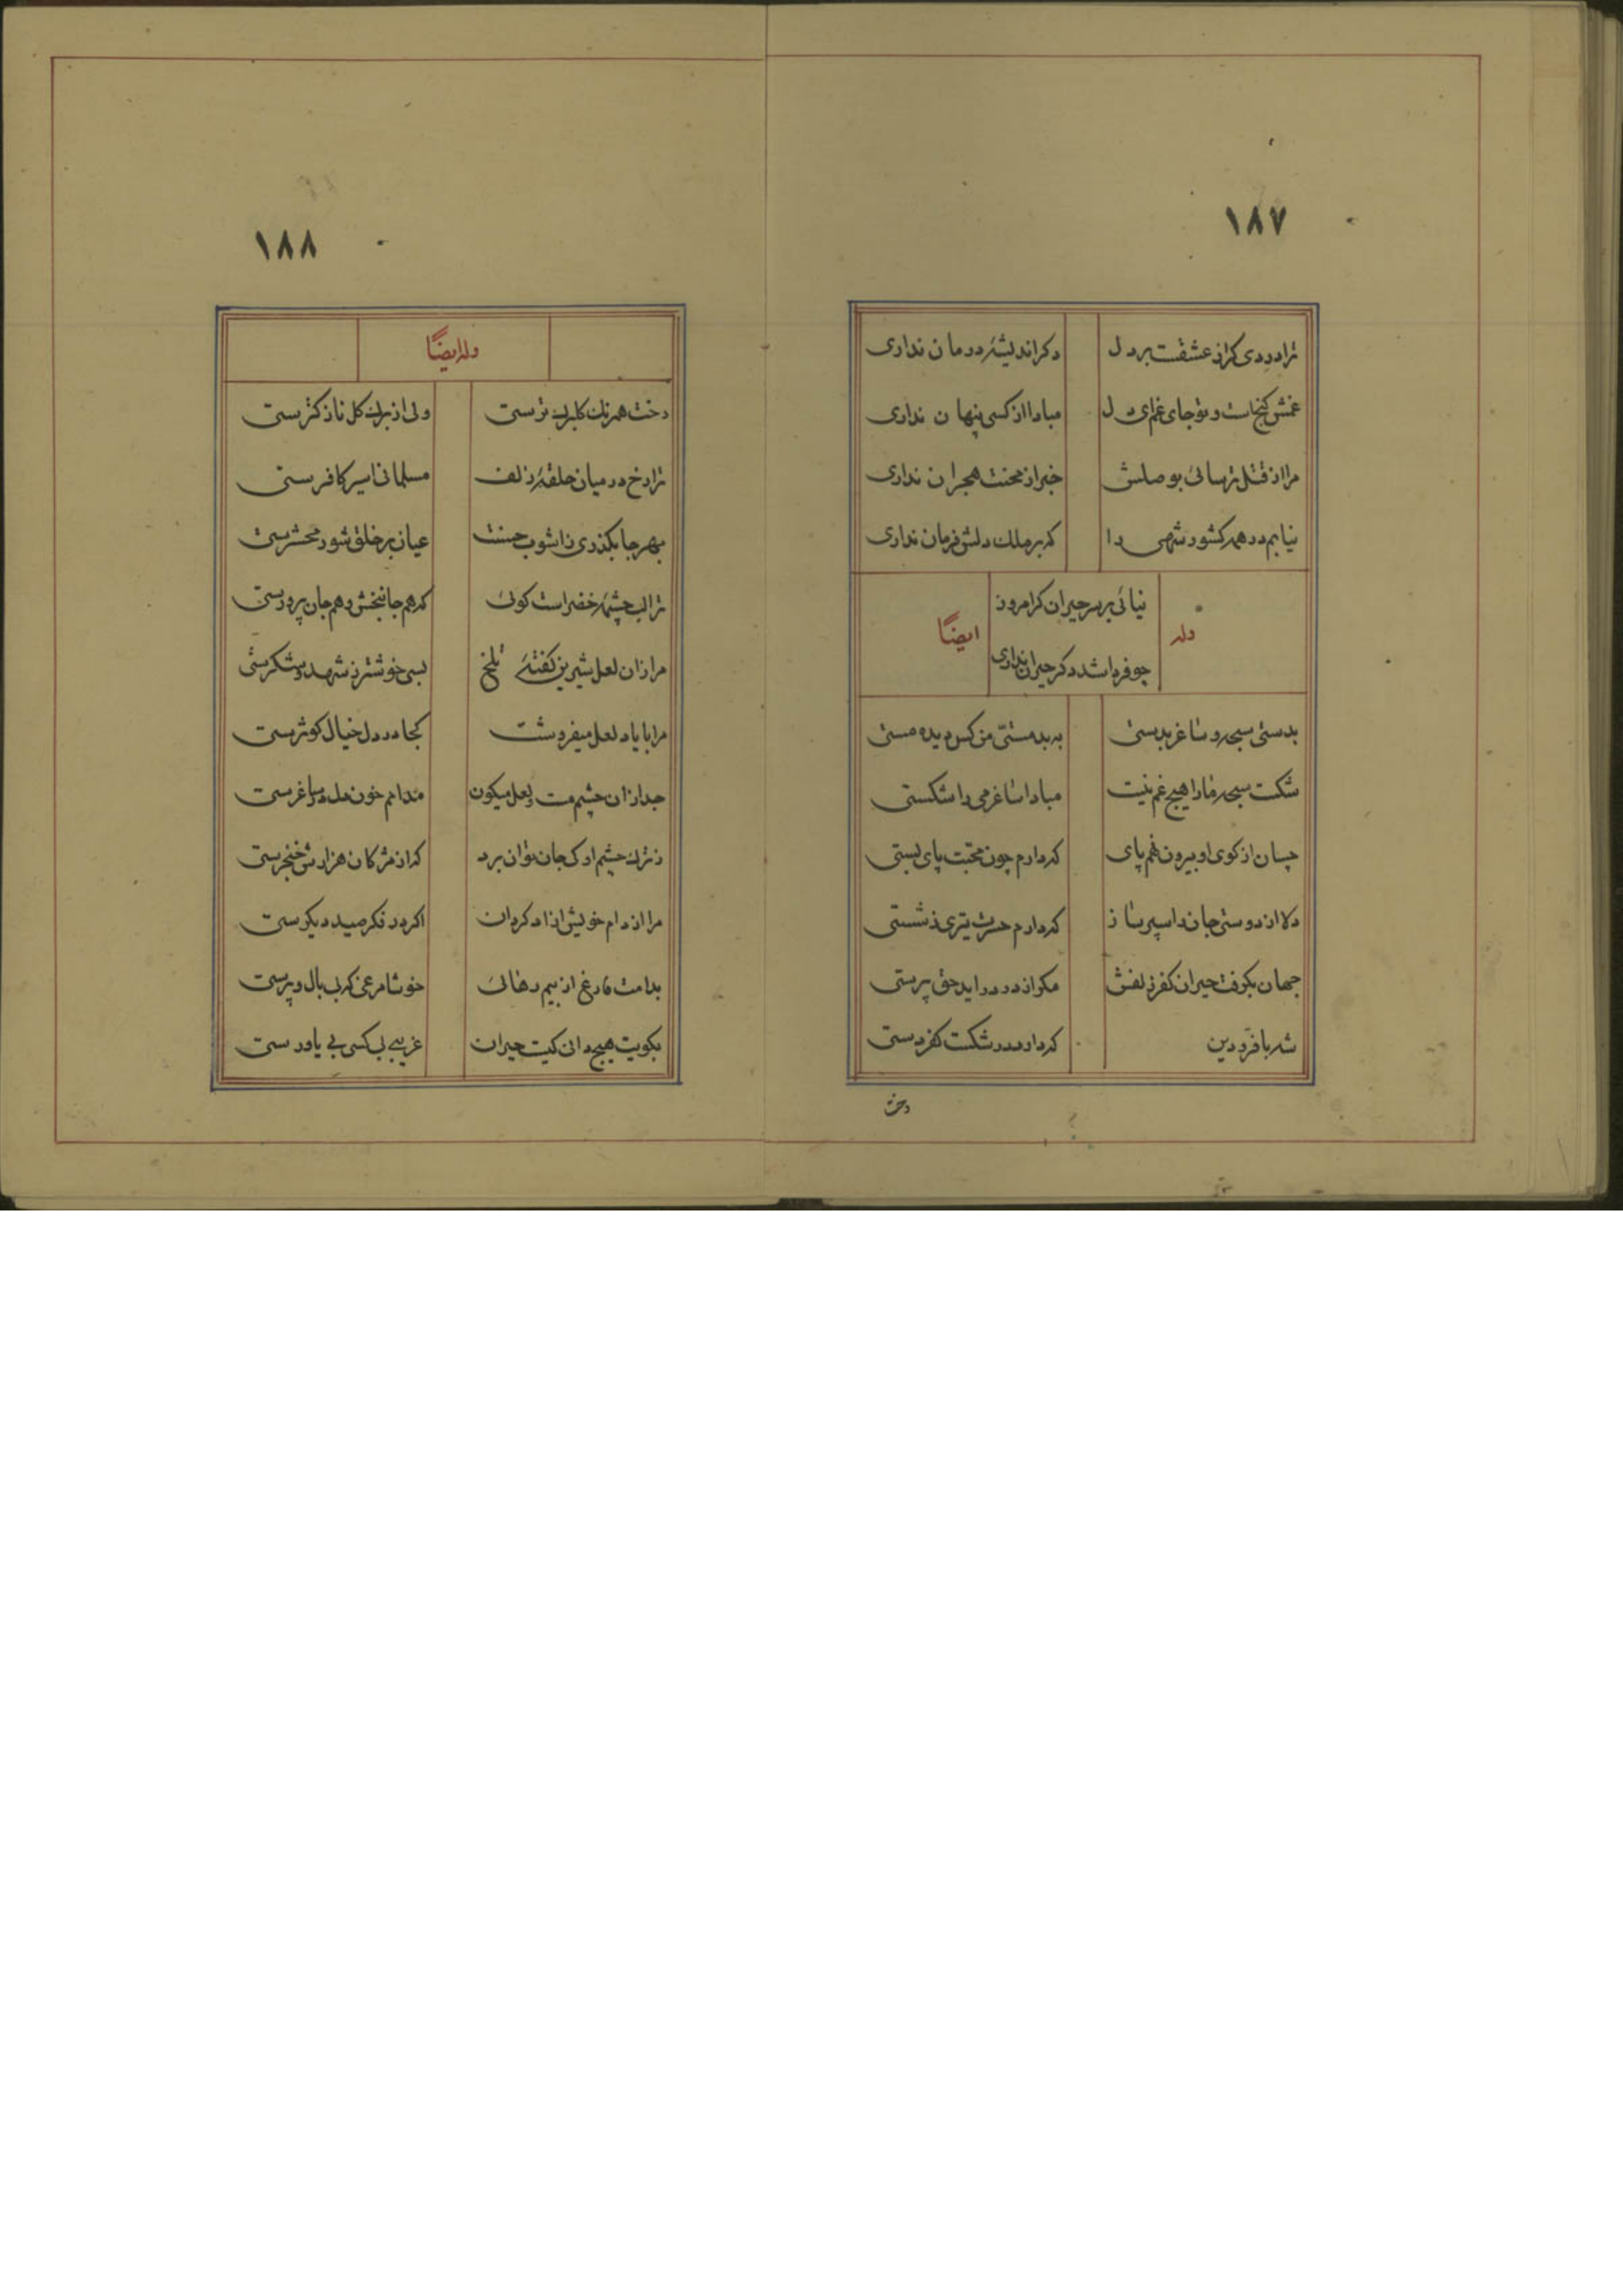 ١٨٧
ترا دردی کز عشقت بر دل
دکر اندیشهٔ درمان نداری
غمش کنجاست و تو جای غم ای دل
مبادا از کسی پنهان نداری
مرا از قتل ترسانی بوصلش
خبر از محنت هجران نداری
نیابم در همه کشور شهی را
که بر ملک دلش فرمان نداری
وله
نیائی بر سر حیران کر امروز
چو فردا شد دکر حیران نداری
ایضاً
بدستی سبحه و ساغر بدستی
به بدمستی من کس دیده مستی
شکست سبحه ما را هیچ غم نیست
مبادا ساغر می را شکستی
چسان از کوی او بیرون نهم پای
که دارم چون محبت پای بستی
دلا از دوستی جانرا سپر ساز
که دارم حسرت تیری ز شستی
جهان بکرفت حیران کفر زلفش
مکر از در در اید حق پرستی
شه با فر و دین
که دارد در شکست کفر دستی
رخت
١٨٨
وله ایضاً
رخت همرنک کلبرک ترستی
ولی از برک کل نازکترستی
ترا رخ در میان حلقهٔ زلف
مسلمانی اسیر کافرستی
بهر جا بکذری ز اشوب حسنت
عیان بر خلق شور محشرستی
ترا لب چشمهٔ خضر است کوئی
که هم جانبخش و هم جان پرورستی
مرا زان لعل شیرین کفتهٔ تلخ
بسی خوشتر ز شهد و شکرستی
مرا با یاد لعل میفروشت
کجا در دل خیال کوثرستی
جدا زان چشم مست و لعل میکون
مدامم خون دل در ساغرستی
ز ترک چشم او کی جان توان برد
که از مژکان هزارش خنجرستی
مرا از دام خویش ازاد کردان
اکر در فکر صید دیکرستی
بدامت فارغ از بیم رهائی
خوشا مرغی که بی بال و پرستی
بکویت هیچ دانی کیست حیران
غریبی بی کسی بی یاورستی